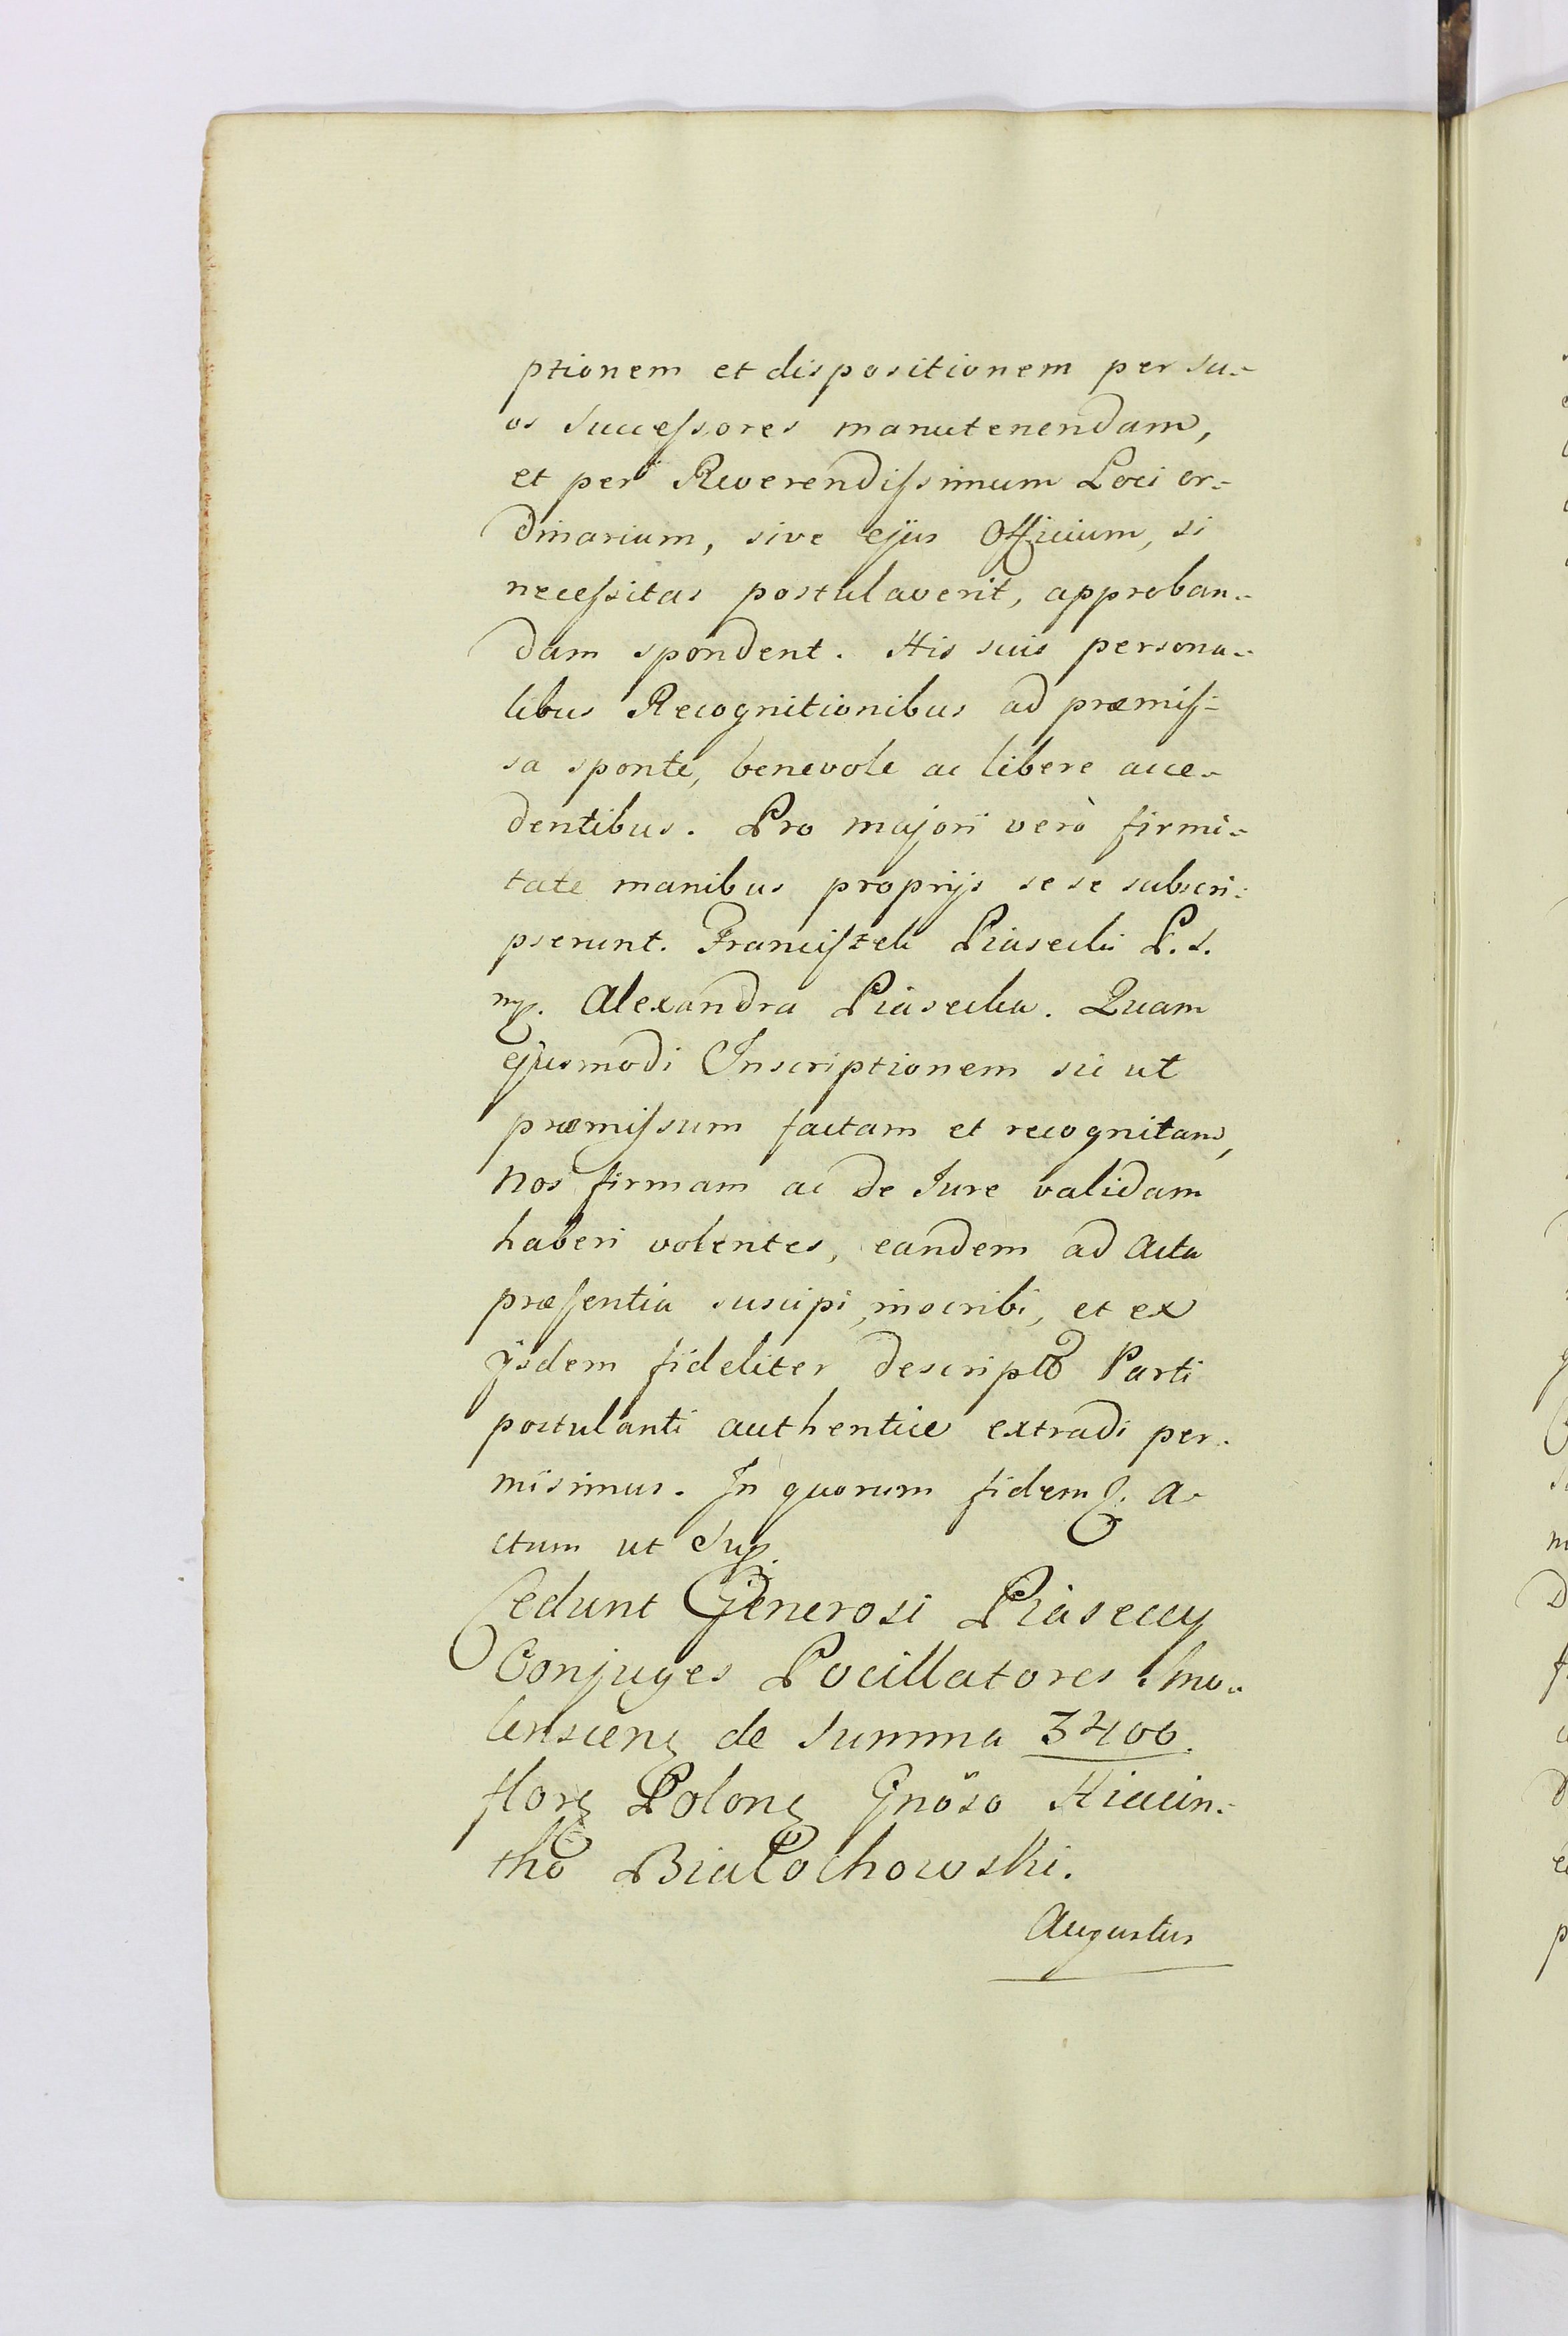 ptionem et dispositionem per su=
os Successores manutenendam,
et per Reverendissimum Loci or=
dinarium, sive ejus Officium, si
necessitas postulaverit, approban=
dam spondent. His suis persona=
libus Recognitionibus ad præmis=
sa sponte, benevole ac libere acce=
dentibus. Pro majori verò firmi=
tate manibus proprijs sese subscri=
pserunt. Franciszek Piasecki P. S.
mp. Alexandra Piasecka. Quam
ejusmodi Inscriptionem sic ut
præmissum factam et recognitam,
Nos firmam ac de Jure validam
haberi volentes, eandem ad Acta
præsentia suscipi, inscribi, et ex
ijsdem fideliter descriptõ Parti
postulanti authentice extradi per=
misimus. In quorum fidem. A=
ctum ut Sup.
Cedunt Generosi Piaseccy
Conjuges Pocillatores Smo=
lenscens de Summa 3400.
flor Polon Gnõso Hiacin=
tho Białochowski.
Augustus